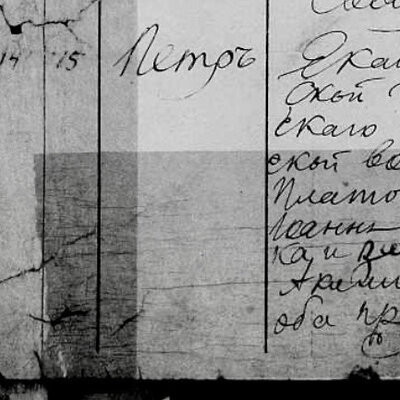 14 15 Петръ Ека
ской
скаго
ской во
Плато
Іоанн
ка и
оба пр